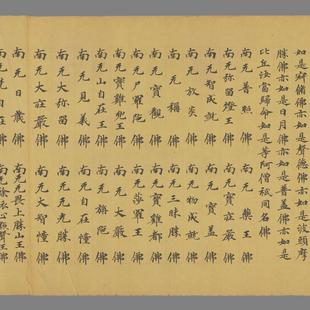 如是辟儲佛亦如是聲德佛亦如是波頭摩
勝佛亦如是日月佛亦如是普蓋佛亦如是
比丘汝當歸命如是等阿僧祇同名佛
南无普照佛 南无藥王佛
南无弥留燈王佛 南无寶莊嚴佛
南无智成就佛 南无智蓋佛
南无放炎佛 南无物成就佛
南无稱佛 南无三昧勝佛
南无寶觀佛 南无華王佛
南无尸羅陁佛 南无寶雞都佛
南无寶雞兜王佛 南无大嚴佛
南无山自在王佛 南无旃陁佛
南无見義佛 南无自在幢佛
南无大弥留佛 南无无勝佛
南无大莊嚴佛 南无大智幢佛
南无日藏佛 南无畏上勝山王佛